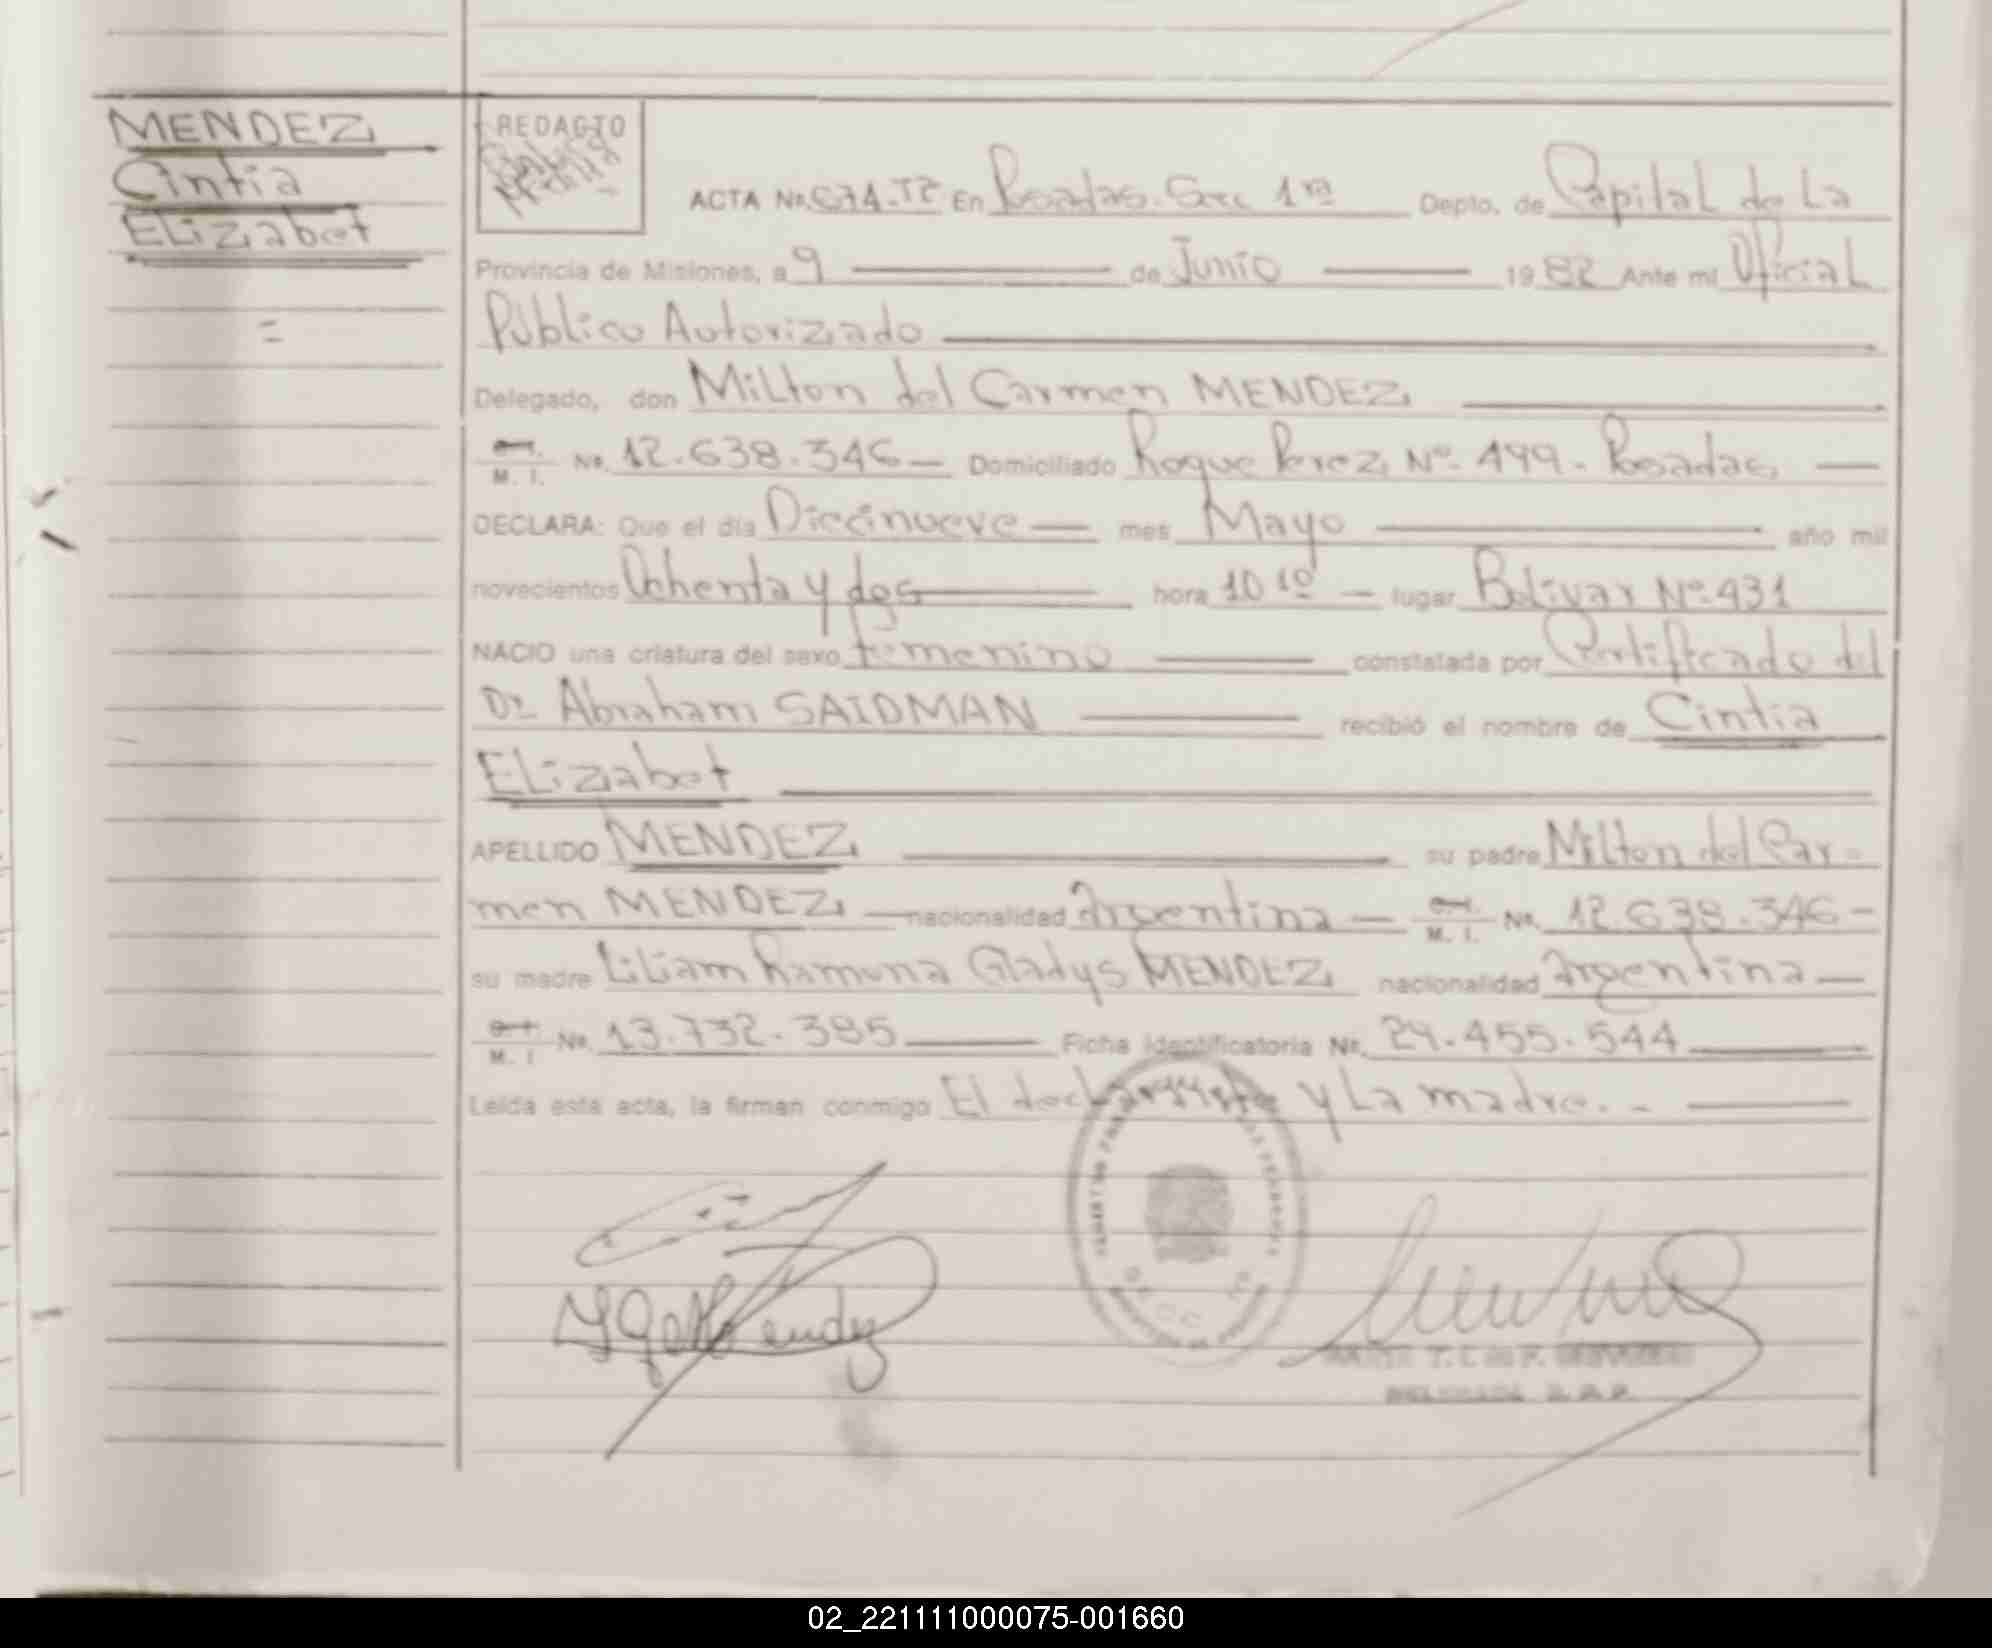 MENDEZ
Cintia
Elizabet
=
REDACTO
ACTA Nº 671-Tº En Posadas. Sec 1ra Depto. de Capital de La
Provincia de Misiones, a 9 de Junio 1982 Ante mi Oficial
Público Autorizado
Delegado, don Milton del Carmen MENDEZ
M. I. Nº 12.638.346 — Domiciliado Roque Perez Nº 499 - Posadas, —
DECLARA: Que el día Diecinueve — mes Mayo año mil
novecientos Ochenta y dos hora 10 10 — lugar Bolivar Nº 431
NACIO una criatura del sexo femenino constatada por Certificado del
Dr Abraham SAIDMAN recibió el nombre de Cintia
Elizabet
APELLIDO MENDEZ su padre Milton del Car-
men MENDEZ — nacionalidad Argentina — M. I. Nº 12.638.346 —
su madre Liliam Ramona Gladys MENDEZ nacionalidad Argentina —
M. I Nº 13.732.385 Ficha Identificatoria Nº 29.455.544
Leída esta acta, la firman conmigo El declarante y La madre. -
02_221111000075-001660